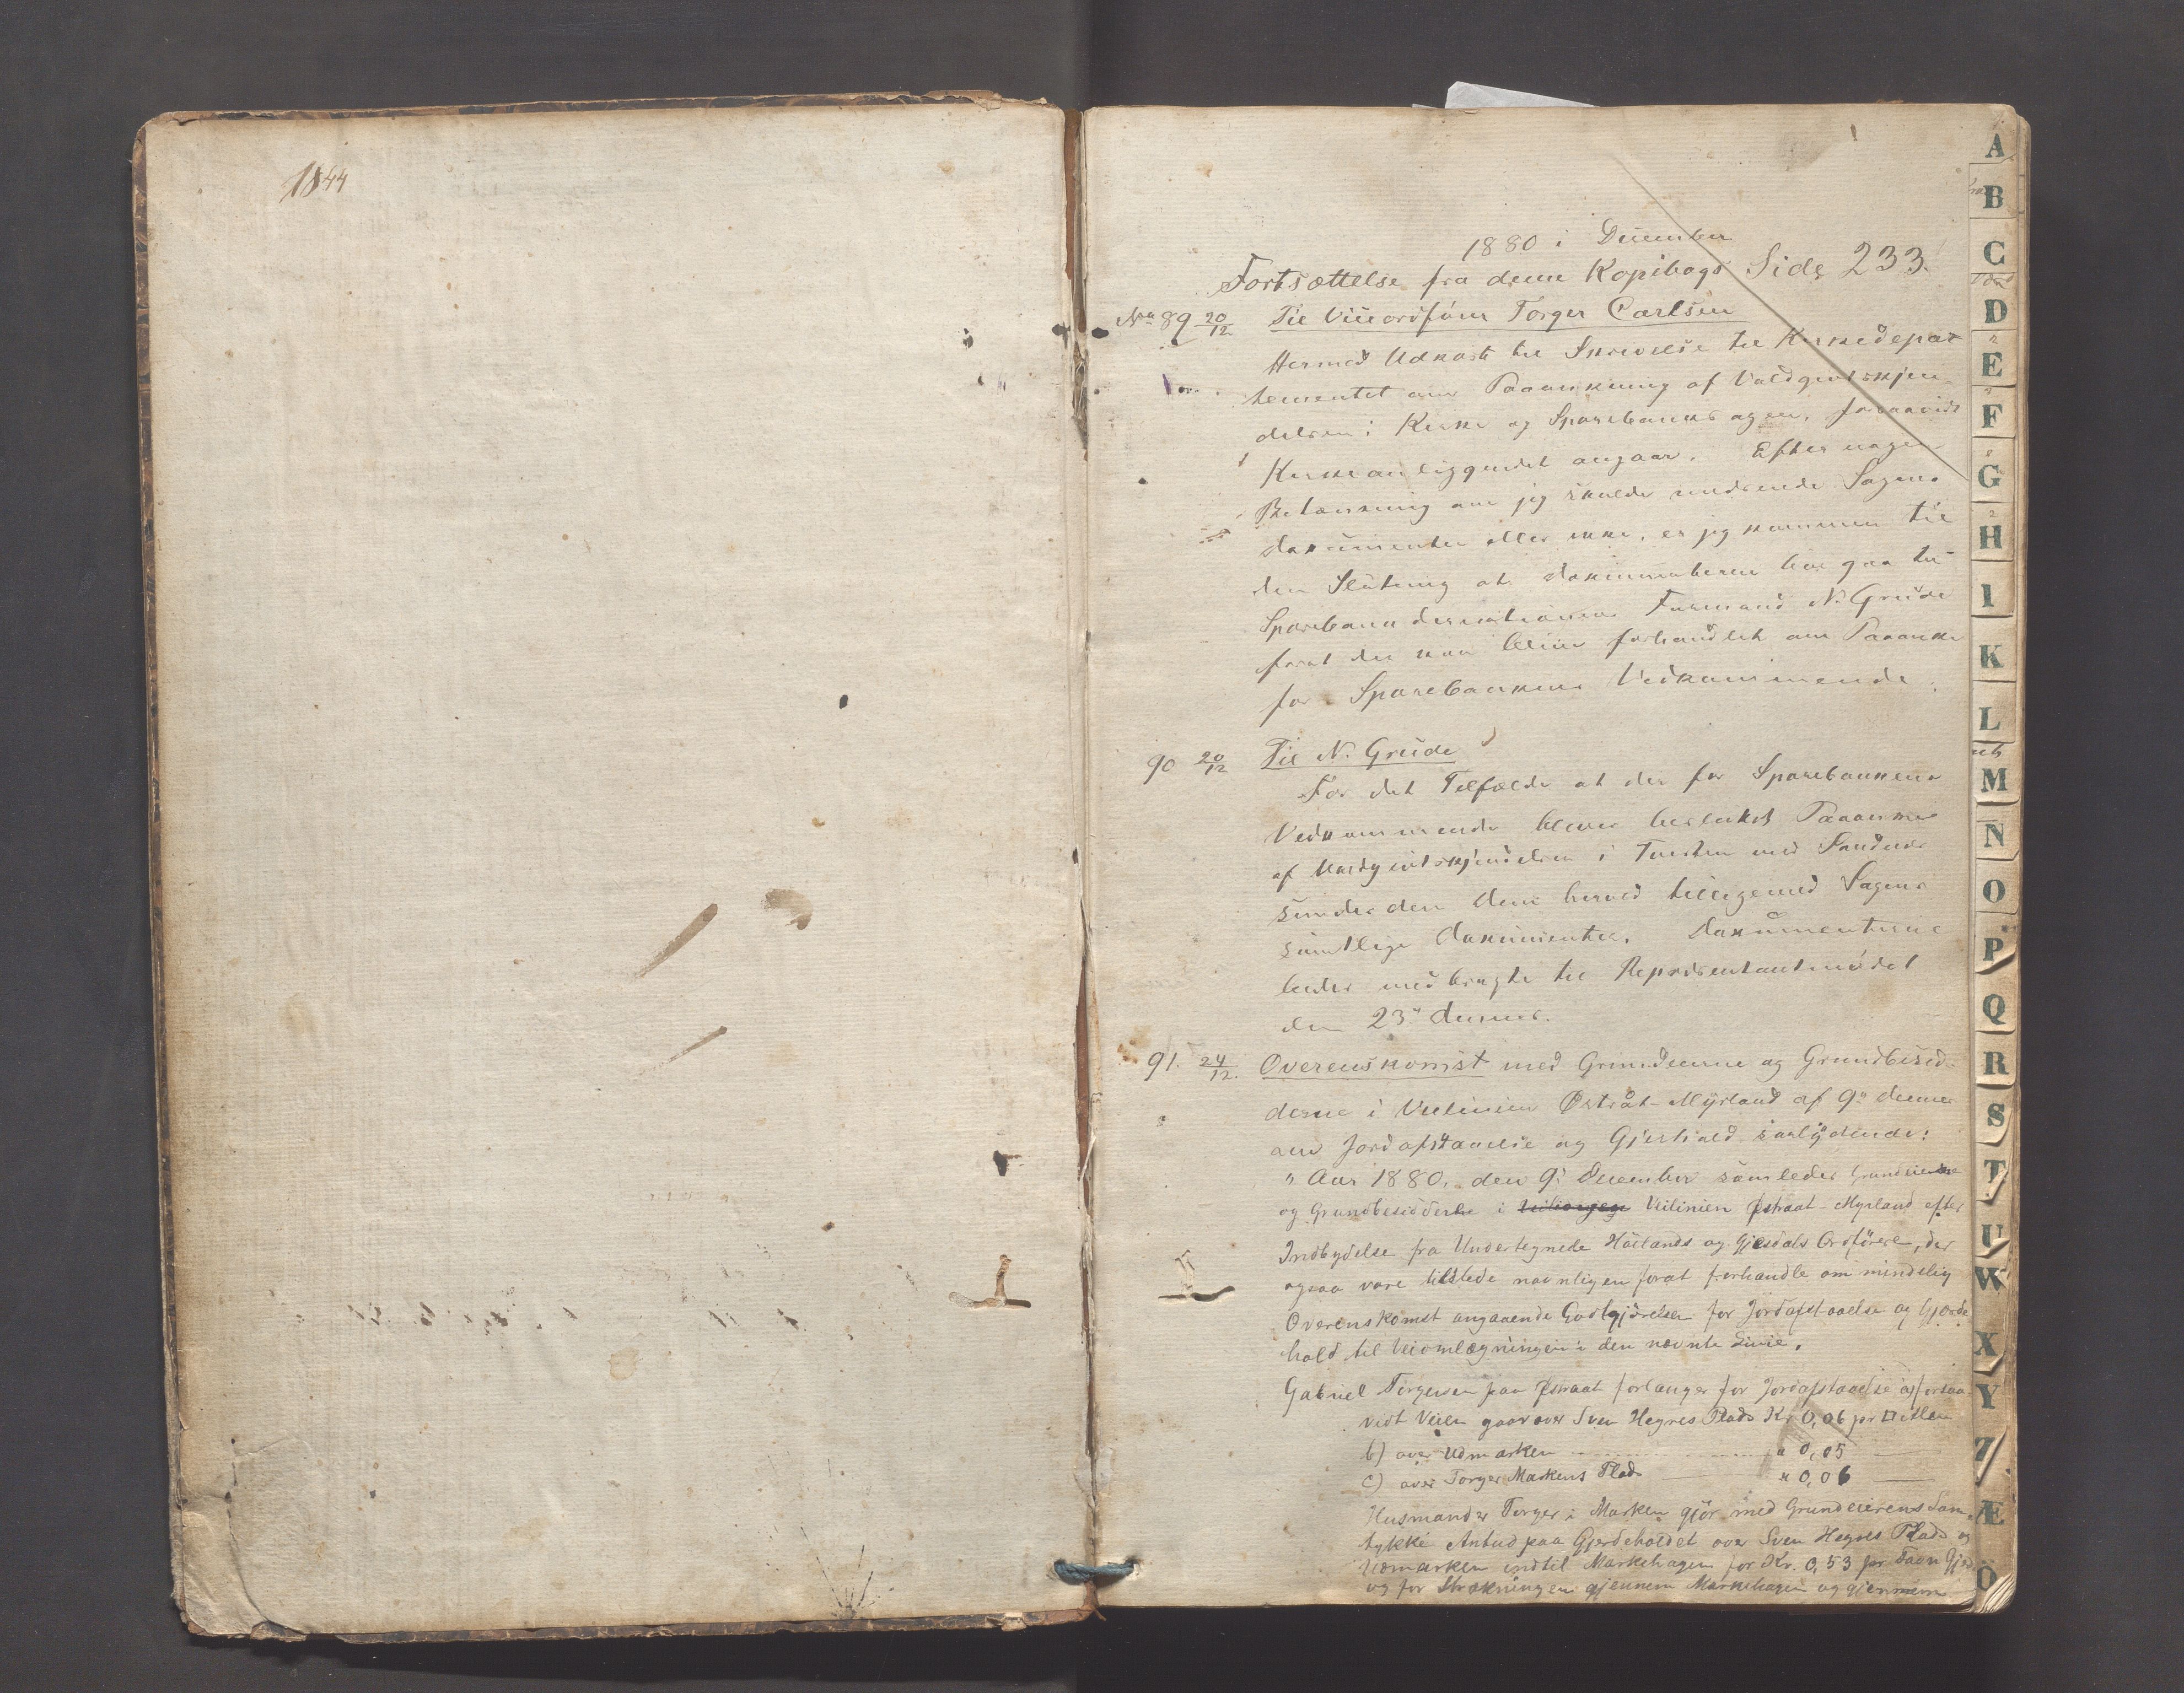 1844
1880 i December
Fortsættelse fra denne Kopibogs Side 233.
No 89 20/12 Til Viceordfører Torger Carlsen
Hermed Udkast til Skrivelse til Kirkedepar
tementet om Paaankning af Voldgivtskjen-
delsen i Kirke og Sparebanksagen, forsaavidt
Kirkeanliggendet angaar. Efter nogen
Betænkning om jeg skulde medsende Sagens
Dokumenter eller ikke, er jeg kommen til
den Slutning at Dokumenterne bør gaa til
Sparebankdirektionens Formand N. Grude
forat der kan blive forhandlet om Paaanke
for Sparebankens Vedkommende.
90 20/12 Til N. Grude
For det Tilfælde at der for Sparebankens
Vedkommende bliver besluttet Paaanke
af Voldgivtskjendelsen i Tvisten med Sandnes
sendes den Dem herved tilligemed Sagens
samtlige Dokumenter. Dokumenterne
bedes medbragte til Repræsentantmødet
den 23de dennes.
91. 24/12. Overenskomst med Grundeierne og Grundbesid-
derne i Veilinien Østråt-Myrland af 9de dennes
om Jordafstaaelse og Gjerhold saalydende:
"Aar 1880, den 9de December samledes Grundeierne
og Grundbesidderne i Veilinien Østraat-Myrland efter
Indbydelse fra Undertegnede Høilands og Gjesdals Ordførere, der
ogsaa vare tilstede navnligen forat forhandle om mindelig
Overenskomst angaaende Godtgjørelsen for Jordafstaaelse og Gjærde
hold til Veiomlægningen i den nævnte Linie.
Gabriel Torgersen paa Østraat forlanger for Jordafstaaelse a) forsaa
vidt Veien gaar over Sven Hegres Plads Kr 0,06 pr □ Allen
b) over Udmarken " 0,05
c) over Torger Markens Plads " 0,06
Husmand Torger i Marken gjør med Grundeierens Sam-
tykke Anbud paa Gjerdeholdet over Sven Hegres Plads og
Udmarken indtil Markehagen for Kr. 0,53 pr Favn Gjerde
og for Strækningen gjennem Markehagen og gjennem
A
B
C
D
E
F
G
H
I
K
L
M
N
O
P
Q
R
S
T
U
W
X
Y
Z
Æ
Ö